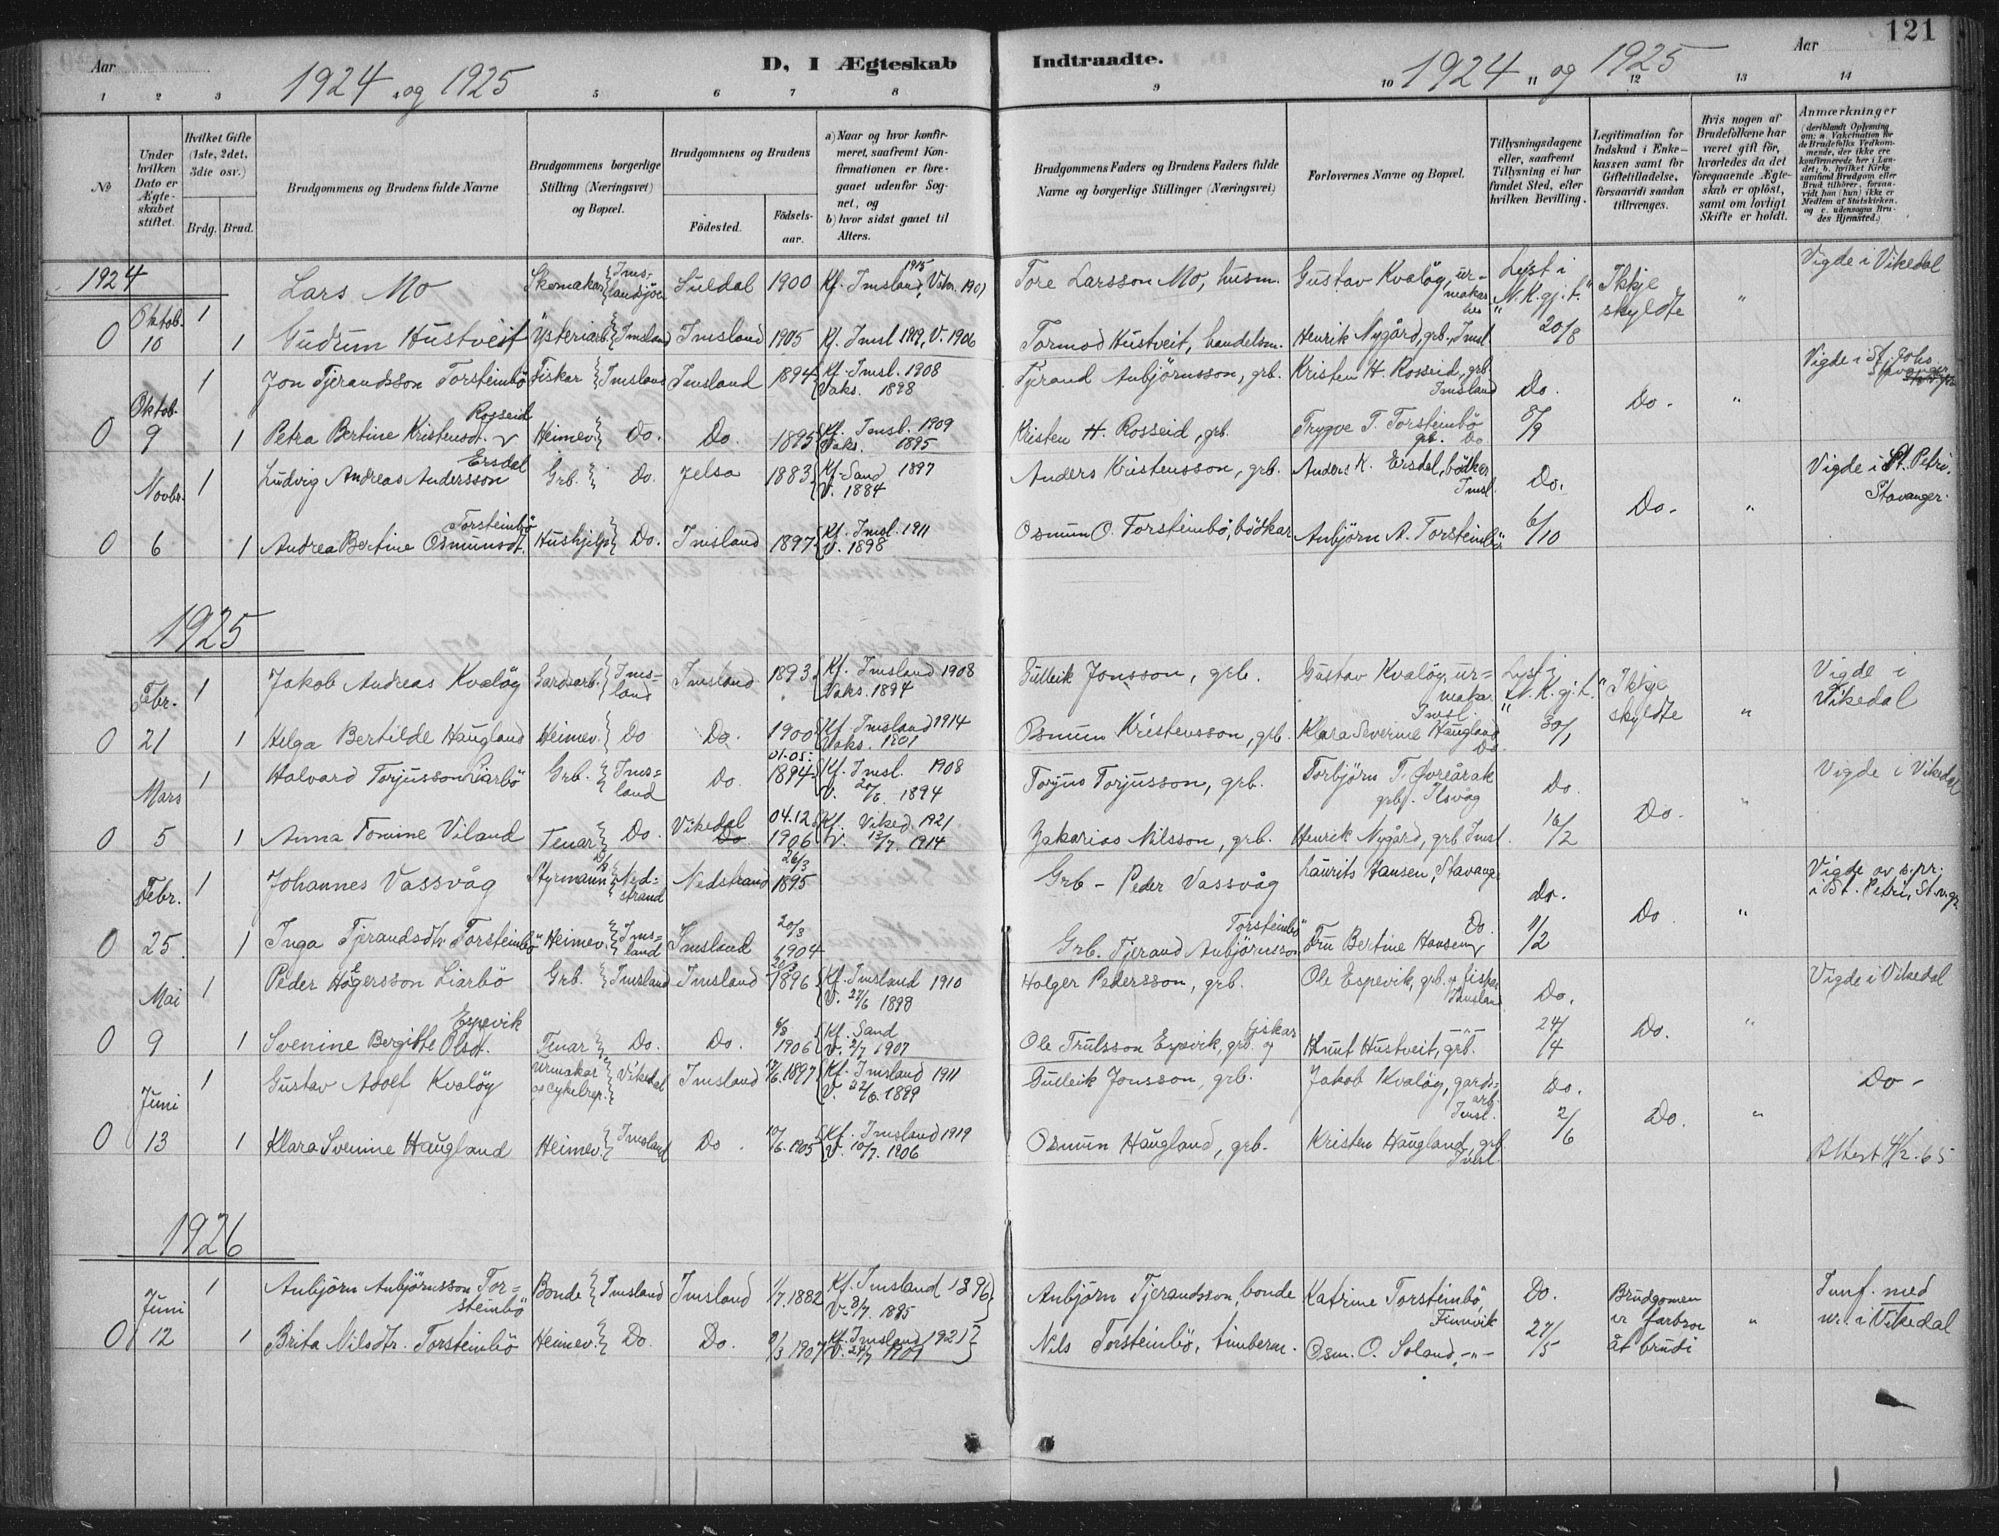 Aar
D, I Ægteskab
Indtraadte.
Aar
121
1924 og 1925
1924 og 1925
1 2 3 4 5 6 7 8 9 10 11 12 13 14
No
Under hvilken Dato er Ægteskabet stiftet.
Hvilket Gifte (1ste, 2det, 3die osv.)
Brdg. Brud.
Brudgommens og Brudens fulde Navne
Brudgommens borgerlige Stilling (Næringsvei) og Bopæl.
Brudgommens og Brudens
Fødested.
Fødselsaar.
a) Naar og hvor konfirmeret, saafremt Konfirmationen er foregaaet udenfor Sognet, og
b) hvor sidst gaaet til Alters.
Brudgommens Faders og Brudens Faders fulde Navne og borgerlige Stillinger (Næringsvei)
Forlovernes Navne og Bopæl.
Tillysningsdagene eller, saafremt Tillysning ei har fundet Sted, efter hvilken Bevilling.
Legitimation for Indskud i Enkekassen samt for Giftetilladelse, forsaavidt saadan tiltrænges.
Hvis nogen af Brudefolkene har været gift før, hvorledes da det foregaaende Ægteskab er opløst, samt om lovligt Skifte er holdt.
Anmærkninger
(deriblandt Oplysning om: a. Vakcination for de Brudefolks Vedkommende, der ikke ere konfirmerede her i Landet; b. hvilket Kirkesamfund Brudgom eller Brud tilhører, forsaavidt han (hun) ikke er Medlem af Statskirken, og c. udensogns Brudes Hjemsted.)
1924
Oktob. 1 Lars Mo Skomakar Imslandsjøen Suldal 1900 Kf. Imsland 1915, Vakn. 1901 Tore Larsson Mo, husm. Gustav Kvaløy, urmakar Lyst i N.K.gj.t. Ikkje skyldte " Vigde i Vikedal
0 10 1 Gudrun Hustveit Ysteriarb. Imsland Imsland 1905 Kf. Imsl 1919, V. 1906 Tormod Hustveit, handelsm. Henrik Nygård, grb., Imsl. 20/8
Oktob. 1 Jon Tjerandsson Torsteinbö Fiskar Imsland Imsland 1894 Kf. Imsl. 1908 Vaks. 1898 Tjerand Anbjörnsson, grb. Kristen H. Rosseid, grb. Imsland Do. Do. " Vigde i St. Johs. Stavanger
0 9 1 Petra Bertine Kristensdt. Rosseid Heimev. Do. Do. 1895 Kf. Imsl. 1909 Vaks. 1895 Kristen H. Rosseid, grb. Trygve T. Torsteinbö grb. Do. 8/9
Novbr. 1 Ludvig Andreas Andersson Ersdal Grb. Do. Jelsa 1883 Kf. Sand 1897 V. 1884 Anders Kristensson, grb. Anders K. Ersdal, bödkar Imsl. Do. Do. " Vigde i St. Petri, Stavanger.
0 6 1 Andrea Bertine Osmundsdt. Torsteinbö Hushjelp Do. Imsland 1897 Kf. Imsl. 1911 V. 1898 Osmun O. Torsteinbö, bödkar Anbjörn A. Torsteinbö 6/10
1925
Febr. 1 Jakob Andreas Kvaløy Gardsarb. Imsland Imsland 1893 Kf. Imsland 1908 Vaks. 1894 Gulleik Jonsson, grb. Gustav Kvaløy, urmakar Imsl. Lyst i N.K.gj.t. Ikkje skyldte " Vigde i Vikedal
0 21 1 Helga Bertilde Haugland Heimev. Do Do. 1900 Kf. Imsland 1914 Vaks. 1901 Osmun Kristensson, grb. Klara Severine Haugland Do. 30/1
Mars 1 Halvard Torjusson Liarbö Grb. Imsland Do. 01.05. 1894 Kf. Imsl. 1908 V. 20/6. 1894 Torjus Torjusson, grb. Torbjörn T. Øvreårak grb., Ilsvåg Do. Do. " Vigde i Vikedal
0 5 1 Anna Tomine Viland Tenar Do. Vikedal Do. 04.12 1906 Kf. Viked 1921 V. 13/7. 1914 Zakarias Nilsson, grb. Henrik Nygård, grb Imsl. 16/2
Febr. 1 Johannes Vassvåg Styrmann Nedstrand Nedstrand 26/3 1895 Grb - Peder Vassvåg Laurits Hansen, Stavanger Do. Do. " Vigde av s.pr. i St. Petri, St.vgr.
0 25 1 Inga Tjerandsdtr Torsteinbö Heimev. Imsland Imsland 20/3 1904 Grb. Tjerand Anbjörnsson Torsteinbö Fru Bertine Hansen Do. 9/2
Mai 1 Peder Hogersson Liarbö Grb. Imsland Imsland 1896 Kf. Imsland 1910 V. 27/6 1898 Holger Pedersson, grb. Ole Espevik, grb. og fiskar Imsland Do. Do. " Vigde i Vikedal
0 9 1 Svenine Bergitte Olsdt. Espevik Tenar Do. Do. 6/8 1906 Kf. Sand V. 2/7 1907 Ole Trulsson Espevik, grb. og fiskar Knut Hustveit, grb. 24/4
Juni 1 Gustav Adolf Kvaløy Urmakar og cykelrep. Vikedal Imsland 1897 Kf. Imsland 1911 V. 22/6. 1899 Gulleik Jonsson, grb. Jakob Kvaløy, gardsarb. Imsl. Do. Do. " Do -
0 13 1 Klara Svenine Haugland Heimev. Imsland Do. 1905 Kf. Imsland 1919 V. 10/7. 1906 Osmun Haugland, grb. Kristen Haugland, grb Imsl. 2/6 Attest 4/2. 65
1926
Juni 1 Anbjörn Anbjörnsson Torsteinbö Bonde Imsland Imsland 1/7. 1882 Kf. Imsland 1896 V. 8/7. 1885 Anbjörn Tjerandsson, bonde Katrine Torsteinbö, Finnvik Do. Brudgomen er farbror åt brudi " Innf. med nr. i Vikedal
0 12 1 Brita Nilsdtr. Torsteinbö Heimev. Do. Do. 1907 Kf. Imsland 1921 V. 24/7 1909 Nils Torsteinbö, timberm. Osm. O. Soland, -"- 27/5